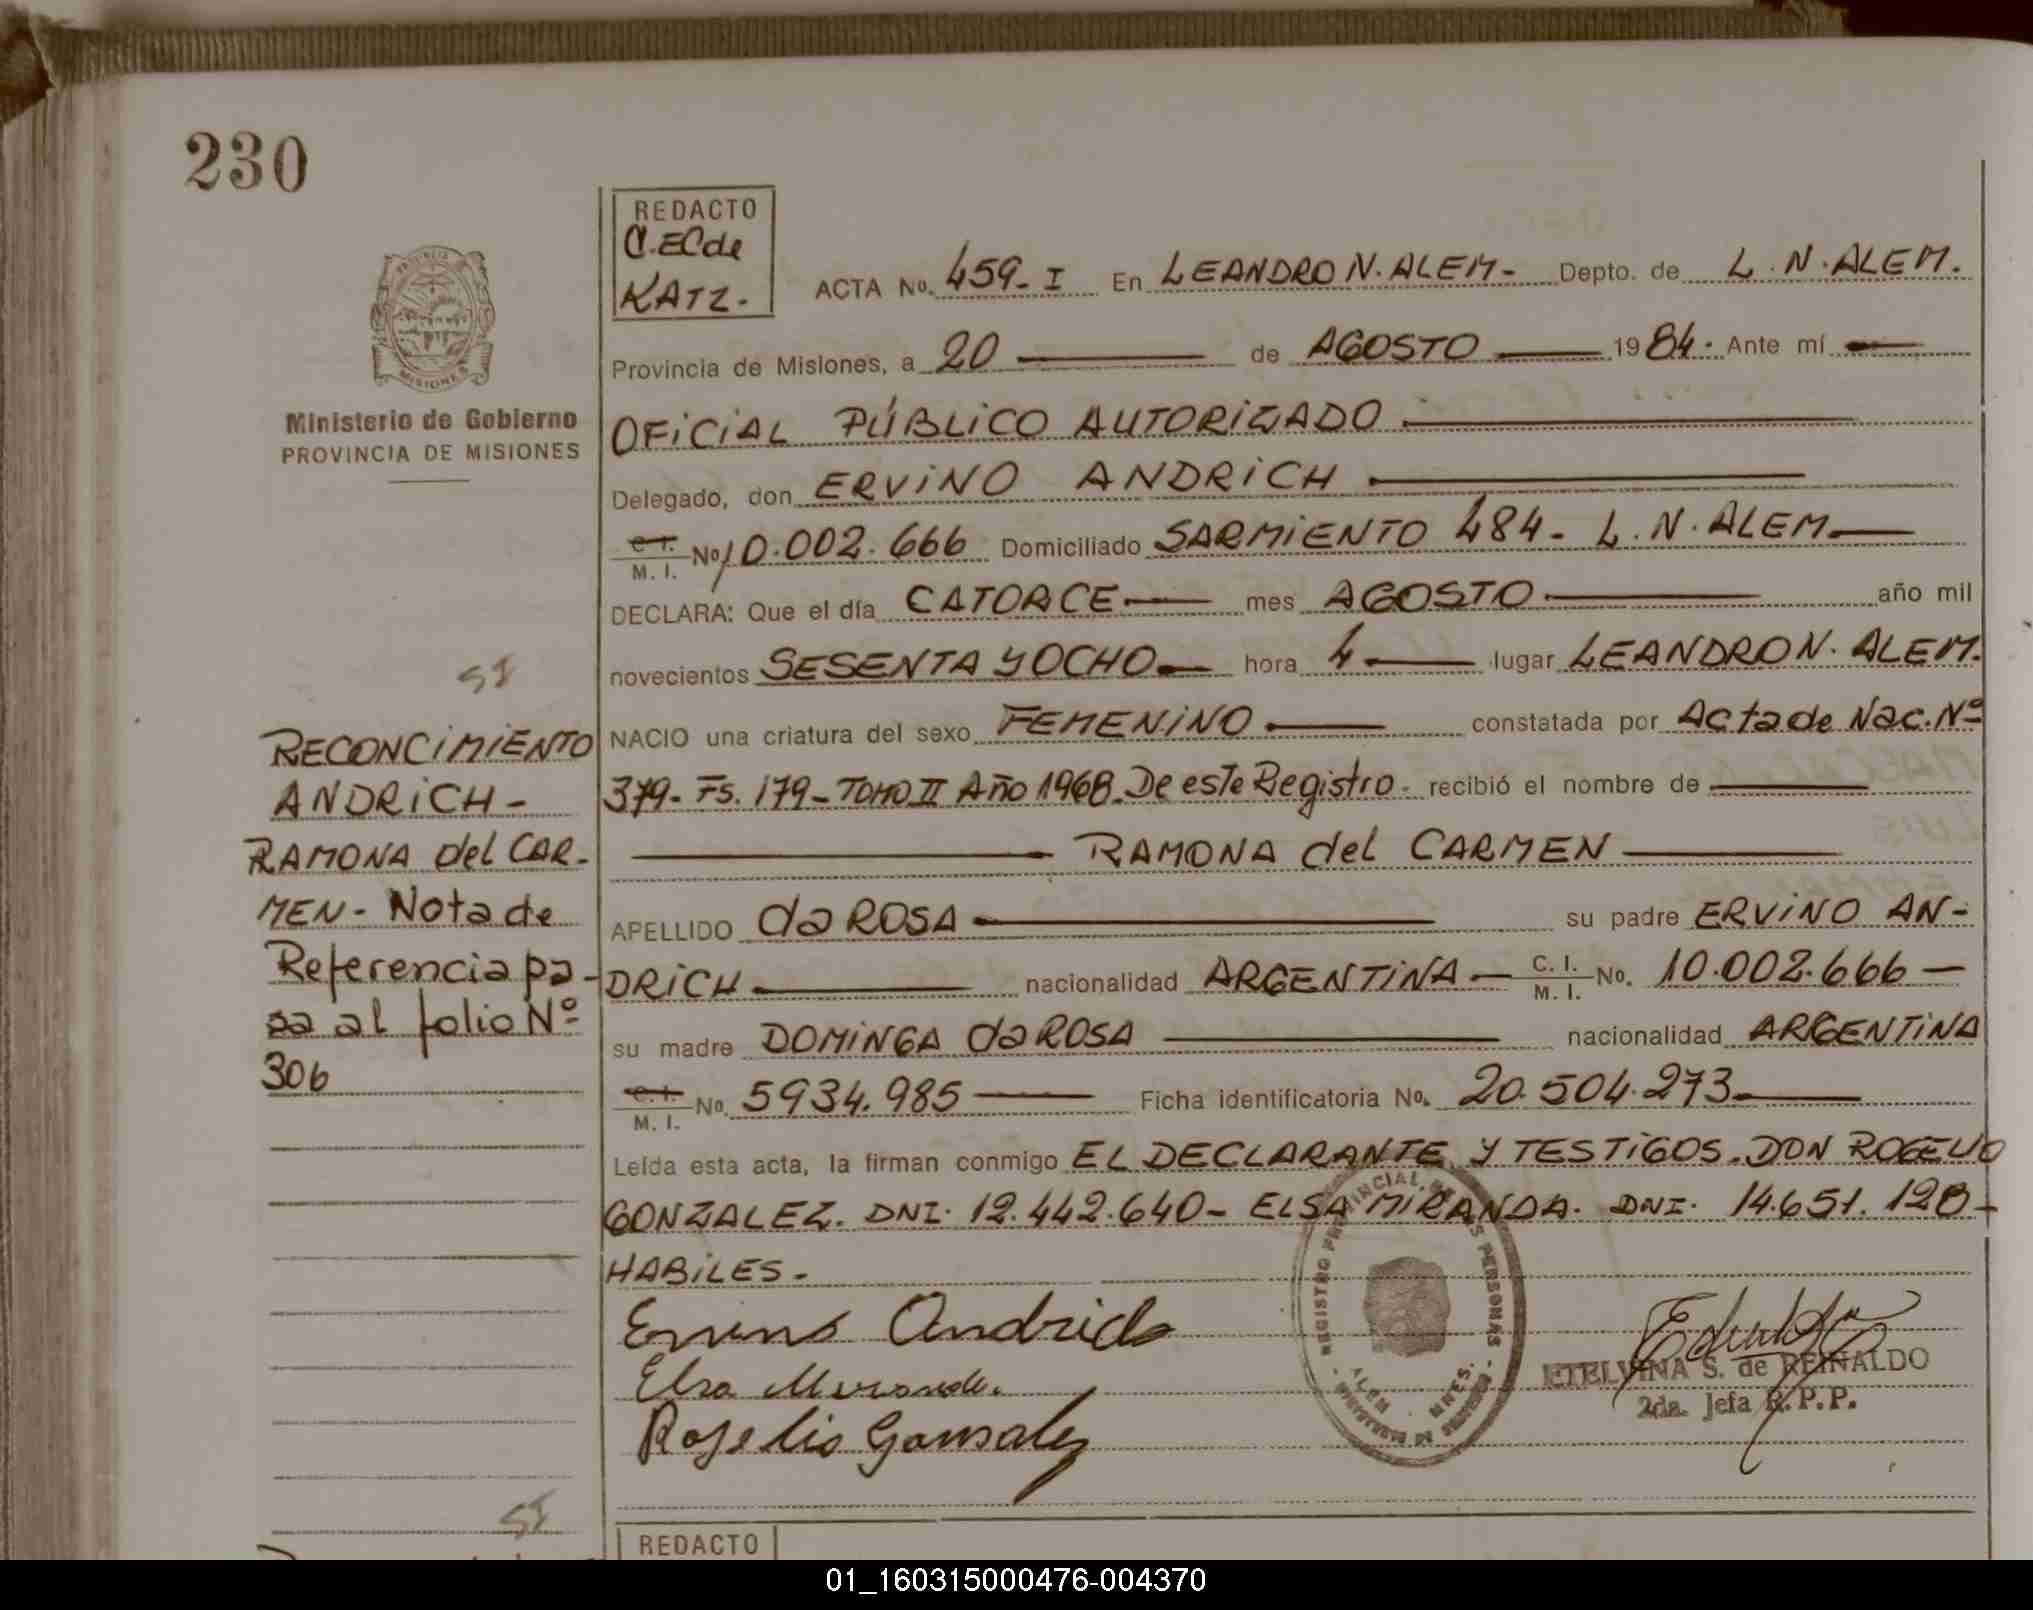 230
REDACTO
C. EC de
KATZ.
ACTA No. 459- I En LEANDRO N. ALEM- Depto. de L. N. ALEM.
Provincia de Misiones, a 20 de AGOSTO 1984. Ante mí
OFICIAL PÚBLICO AUTORIZADO
Delegado, don ERVINO ANDRICH
C. I. M. I. No. 10.002.666 Domiciliado SARMIENTO 484- L. N. ALEM.
DECLARA: Que el día CATORCE mes AGOSTO año mil
novecientos SESENTA Y OCHO hora 4 lugar LEANDRO N. ALEM.
NACIO una criatura del sexo FEMENINO constatada por Acta de Nac. Nº
379- Fs. 179- TOMO II Año 1968. De este Registro- recibió el nombre de
RAMONA del CARMEN
APELLIDO da ROSA su padre ERVINO AN-
DRICH nacionalidad ARGENTINA C. I. M. I. No. 10.002.666
su madre DOMINGA da ROSA nacionalidad ARGENTINA
C. I. M. I. No. 5934.985 Ficha identificatoria No. 20.504.273
Leída esta acta, la firman conmigo EL DECLARANTE Y TESTIGOS. DON ROGELIO
GONZALEZ. DNI. 12.442.640- ELSA MIRANDA. DNI. 14.651.120-
HABILES-
Ervino Andrich
Elsa Miranda.
Rogelio Gonsalez
REGISTRO PROVINCIAL DE LAS PERSONAS
ALEM MNES.
ETELVINA S. de REINALDO
2da. Jefa R.P.P.
PROVINCIA
MISIONES
Ministerio de Gobierno
PROVINCIA DE MISIONES
SI
RECONCIMIENTO
ANDRICH-
RAMONA del CAR-
MEN- Nota de
Referencia pa-
sa al folio Nº
306
SI
REDACTO
01_160315000476-004370